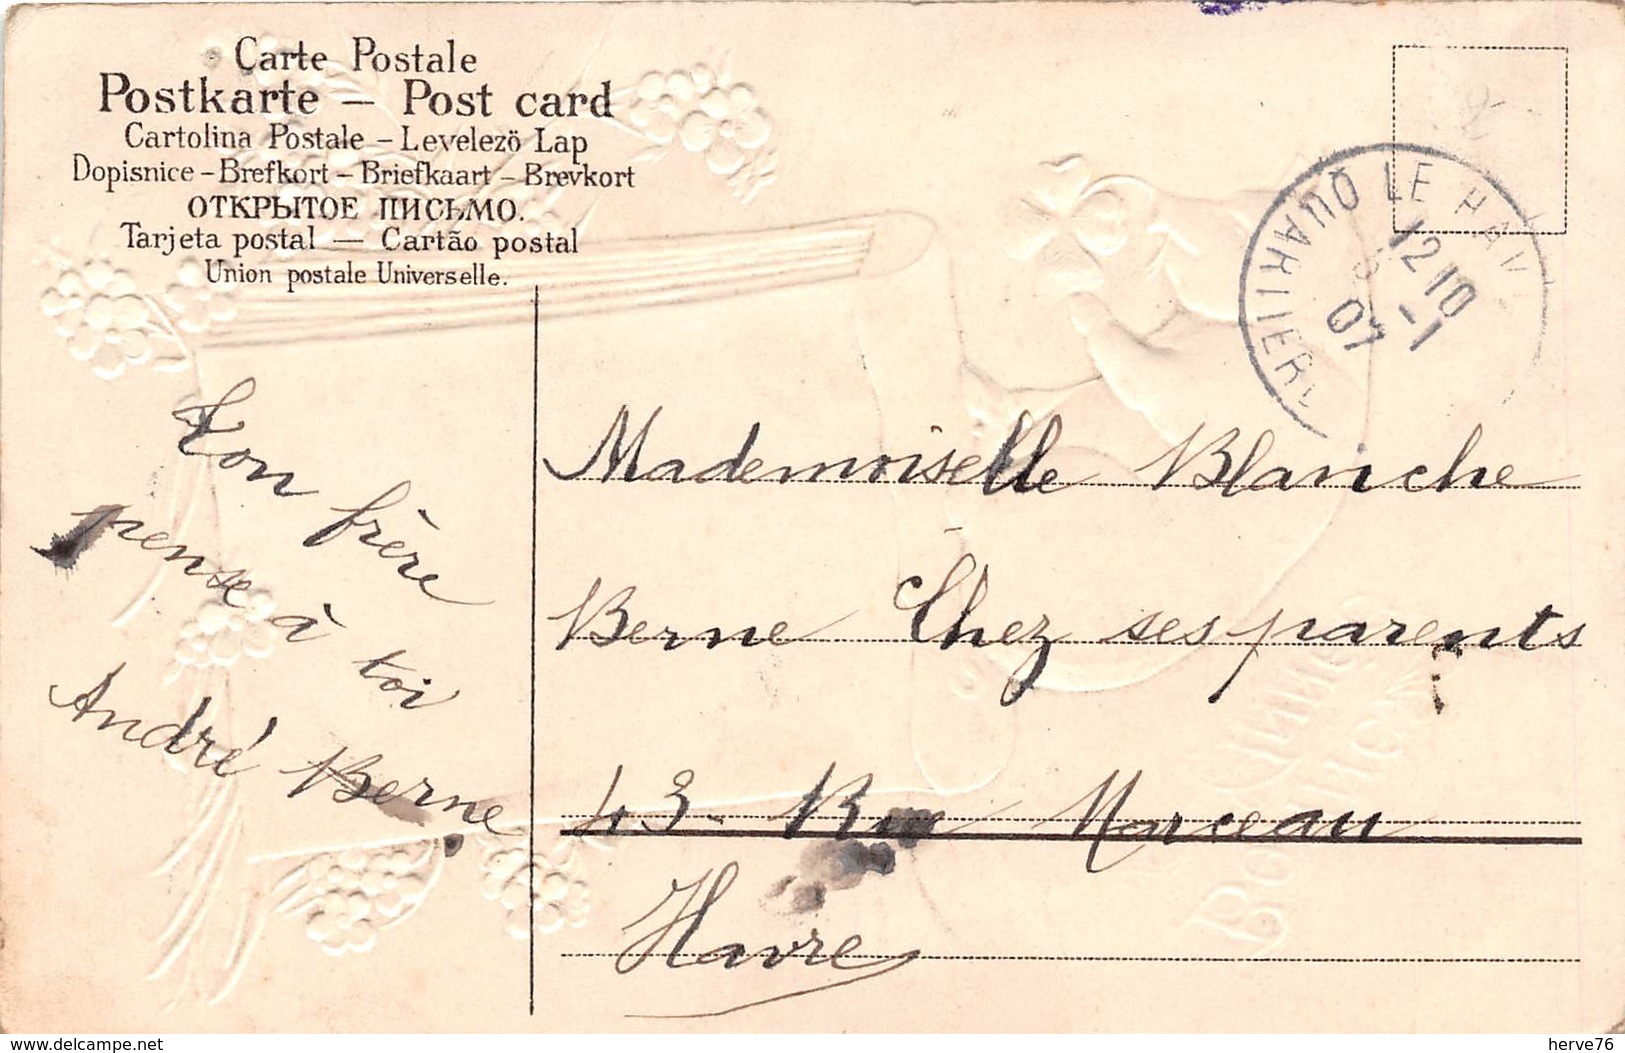 Carte Postale
Postkarte – Post card
Cartolina Postale – Levelezö Lap
Dopisnice – Brefkort – Briefkaart – Brevkort
ОТКРЫТОЕ ПИСЬМО.
Tarjeta postal — Cartão postal
Union postale Universelle.
LE HAV
12 10
1 - 1
07
Ton frère
pense à toi
André Berne
Mademoiselle Blanche
Berne Chez ses parents
43 - Rue Marceau
Havre
delcampe.net
herve76